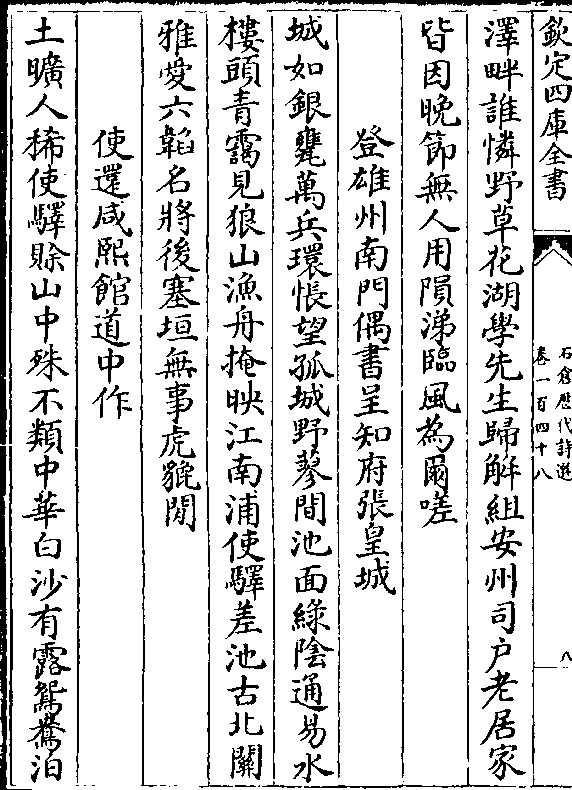 欽定四庫全書
石倉歷代詩選
卷一百四十八
八
澤畔誰憐野草花湖學先生歸解組安州司户老居家
皆因晚節無人用隕涕臨風為爾嗟
登雄州南門偶書呈知府張皇城
城如銀甕萬兵環悵望孤城野蓼間池面緑陰通易水
樓頭青靄見狼山漁舟掩映江南浦使驛差池古北關
雅愛六韜名將後塞垣無事虎貔閒
使還咸熙館道中作
土曠人稀使驛賒山中殊不類中華白沙有露鴛鴦泊